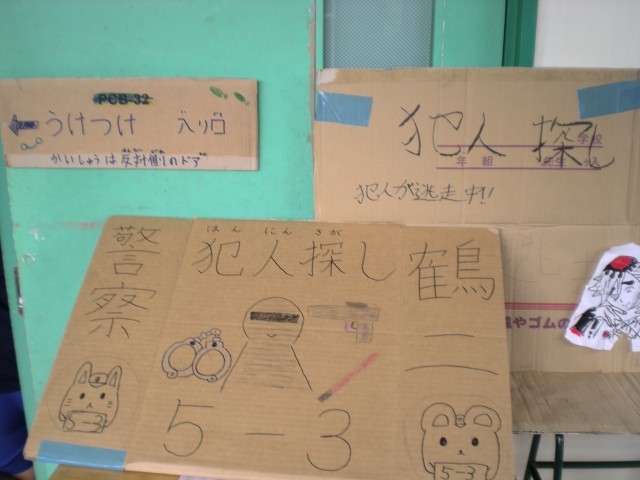 PCB-32
うけつけ 入り口
かいしゅうは反対側のドア
犯人 探し
学校
年 組
犯人が逃走中!!
はんにんさが
警察
犯人探し
鶴二
5-3
5-3
5-3